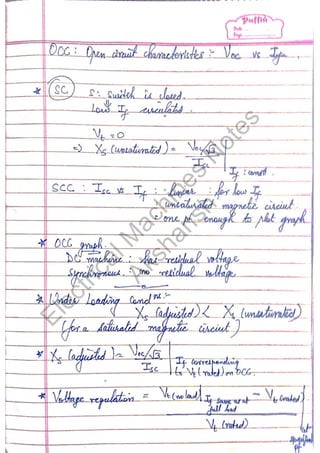 Puffin
Date
Page
OCC : Open circuit characteristics :- Voc vs If
* SC S: switch is closed.
Low If circulated.
Vt = 0
=> Xs (unsaturated) = Voc/√3 / Isc | If : const
SCC : Isc vs If : linear : for low If
unsaturated magnetic circuit
one pt enough to plot graph
* OCC graph.
DC machine : has residual voltage
Synchronous : no residual voltage
* Under Loading Condns :-
Xs (adjusted) < Xs (unsaturated)
(for a saturated magnetic circuit)
* Xs (adjusted) = Voc/√3 / Isc | If corresponding to Vt (rated) on OCC.
* Voltage regulation = Vt (no load) | If same as at full load - Vt (rated)
Vt (rated) | at specified pf
Electrical Machines Notes